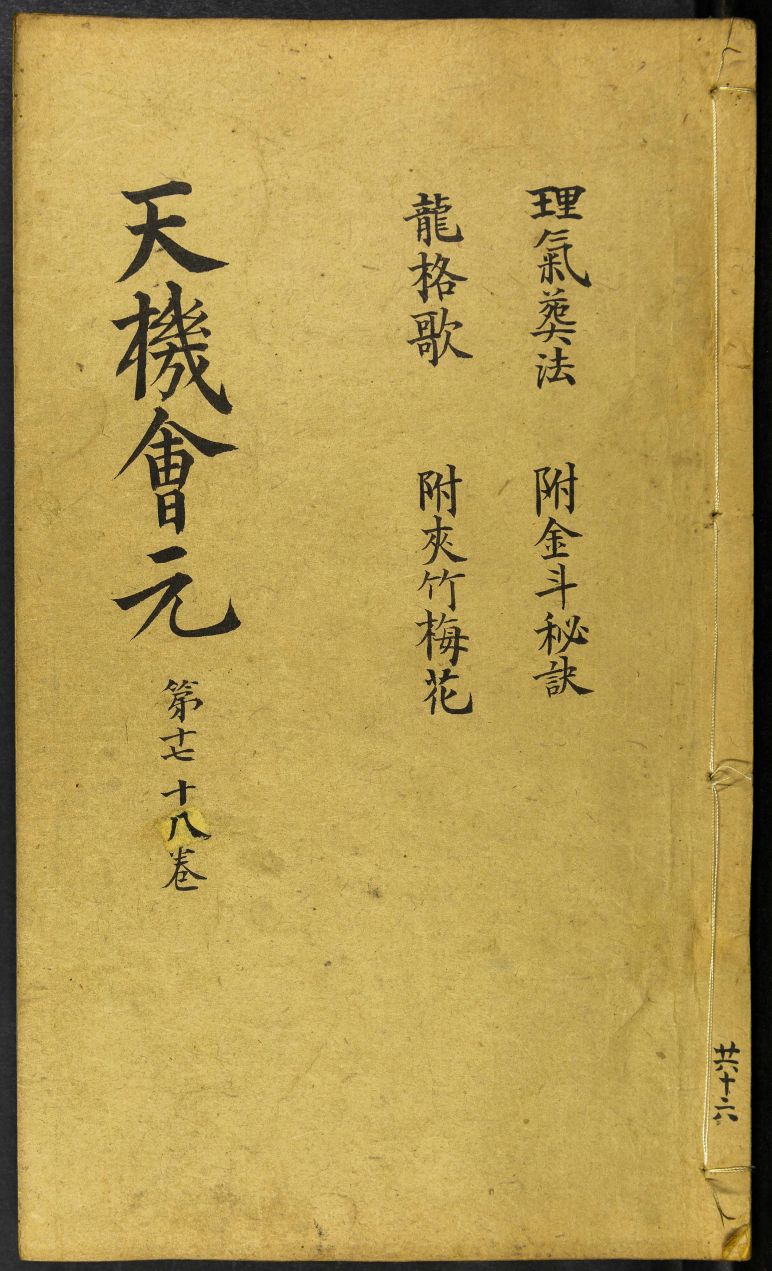 理氣葬法 附金斗秘訣
龍格歌 附夾竹梅花
天機會元 第十七 十八卷
共十六